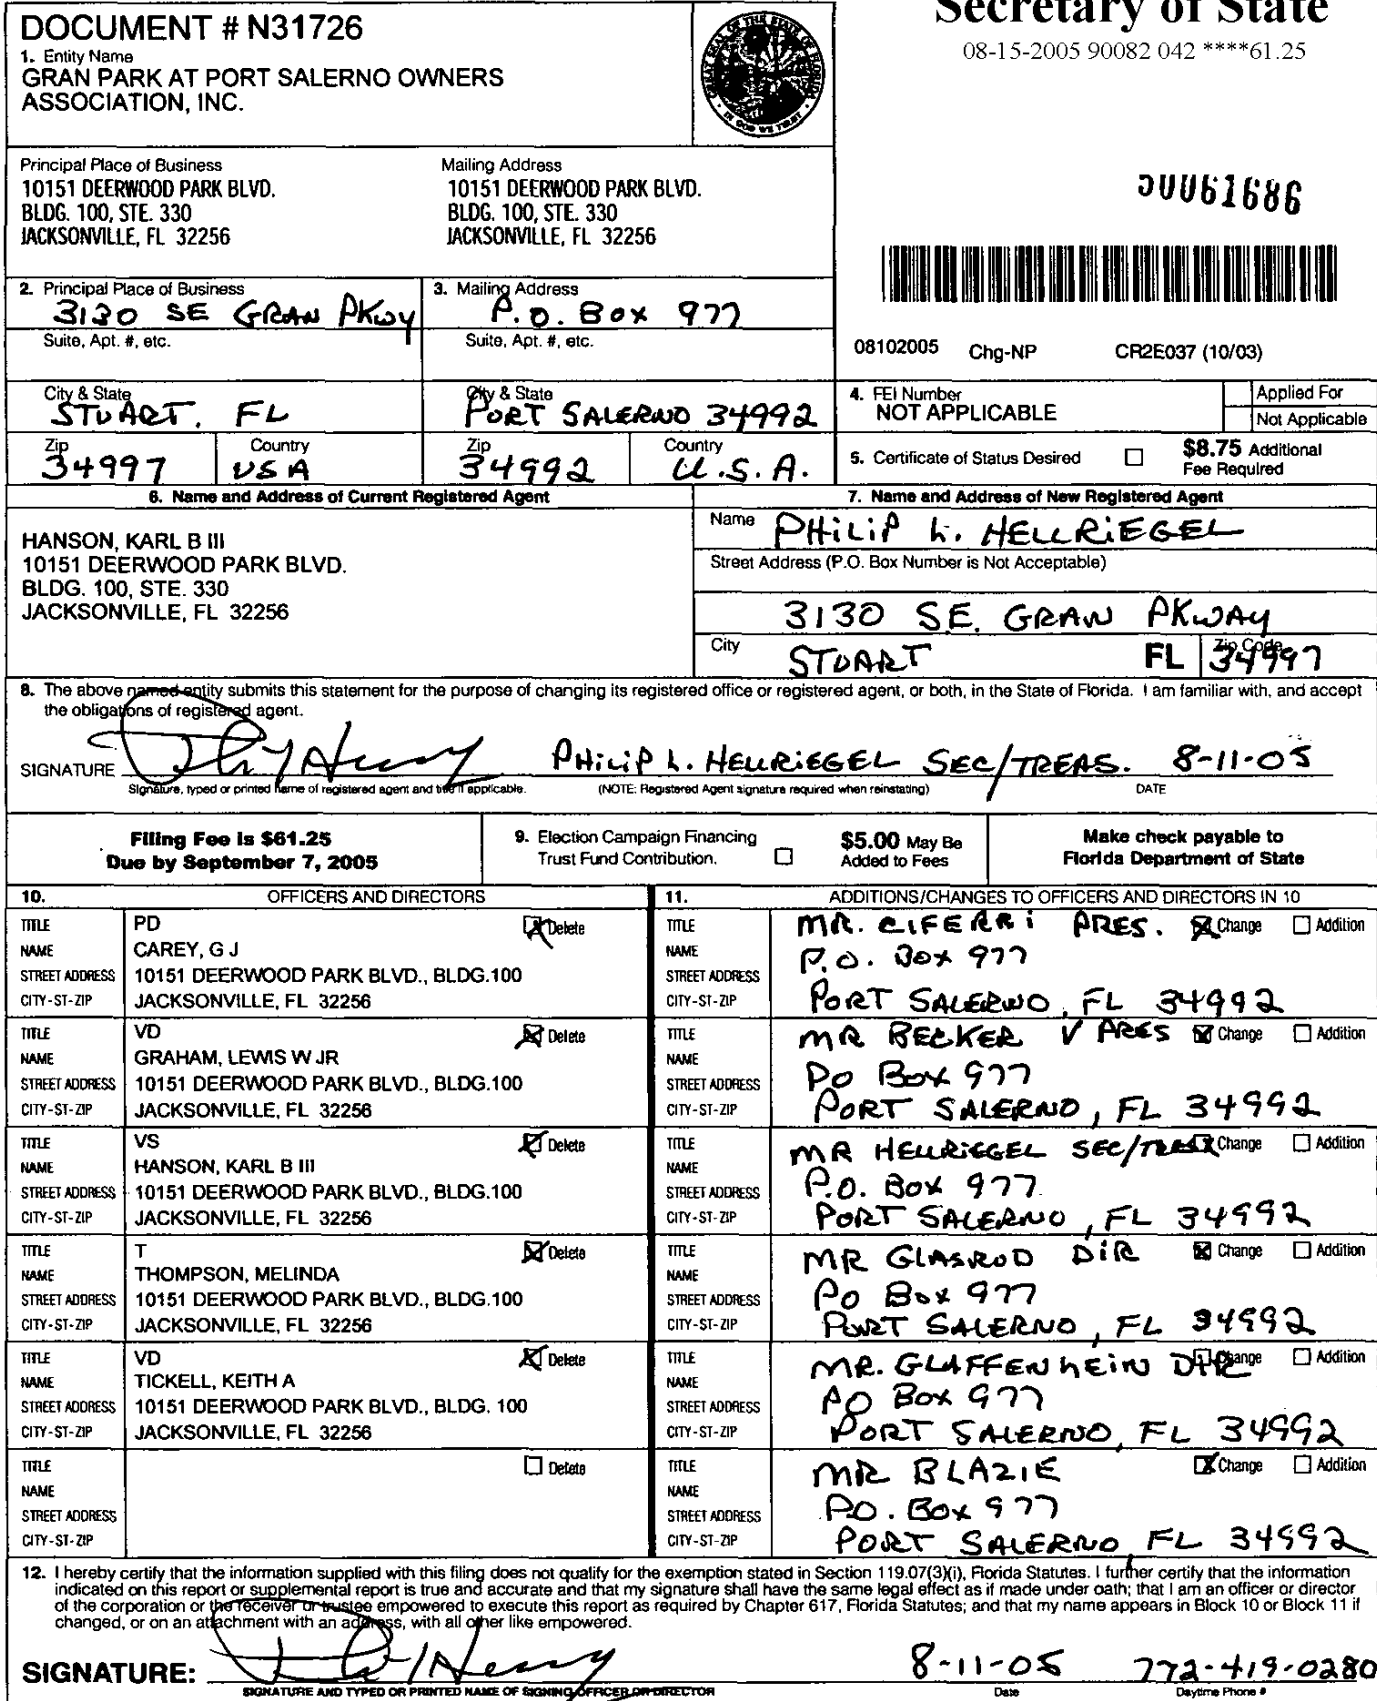 Secretary of State
08-15-2005 90082 042 ****61.25
DOCUMENT # N31726
1. Entity Name
GRAN PARK AT PORT SALERNO OWNERS
ASSOCIATION, INC.
IN GOD WE TRUST
Principal Place of Business
10151 DEERWOOD PARK BLVD.
BLDG. 100, STE. 330
JACKSONVILLE, FL 32256
Mailing Address
10151 DEERWOOD PARK BLVD.
BLDG. 100, STE. 330
JACKSONVILLE, FL 32256
50061686
2. Principal Place of Business
3130 SE GRAN PKWY
Suite, Apt. #, etc.
3. Mailing Address
P.O. BOX 977
Suite, Apt. #, etc.
08102005 Chg-NP CR2E037 (10/03)
City & State
STUART, FL
City & State
PORT SALERNO 34992
Zip
34997
Country
USA
Zip
34992
Country
U.S.A.
4. FEI Number
NOT APPLICABLE
Applied For
Not Applicable
5. Certificate of Status Desired
$8.75 Additional
Fee Required
6. Name and Address of Current Registered Agent
HANSON, KARL B III
10151 DEERWOOD PARK BLVD.
BLDG. 100, STE. 330
JACKSONVILLE, FL 32256
7. Name and Address of New Registered Agent
Name PHILIP L. HELLRIEGEL
Street Address (P.O. Box Number is Not Acceptable)
3130 S.E. GRAN PKWAY
City STUART FL Zip Code 34997
8. The above named entity submits this statement for the purpose of changing its registered office or registered agent, or both, in the State of Florida. I am familiar with, and accept
the obligations of registered agent.
SIGNATURE PHILIP L. HELLRIEGEL SEC/TREAS. 8-11-05
Signature, typed or printed name of registered agent and title if applicable. (NOTE: Registered Agent signature required when reinstating) DATE
Filing Fee is $61.25
Due by September 7, 2005
9. Election Campaign Financing
Trust Fund Contribution.
$5.00 May Be
Added to Fees
Make check payable to
Florida Department of State
10. OFFICERS AND DIRECTORS
TITLE PD Delete
NAME CAREY, G J
STREET ADDRESS 10151 DEERWOOD PARK BLVD., BLDG.100
CITY-ST-ZIP JACKSONVILLE, FL 32256
TITLE VD Delete
NAME GRAHAM, LEWIS W JR
STREET ADDRESS 10151 DEERWOOD PARK BLVD., BLDG.100
CITY-ST-ZIP JACKSONVILLE, FL 32256
TITLE VS Delete
NAME HANSON, KARL B III
STREET ADDRESS 10151 DEERWOOD PARK BLVD., BLDG.100
CITY-ST-ZIP JACKSONVILLE, FL 32256
TITLE T Delete
NAME THOMPSON, MELINDA
STREET ADDRESS 10151 DEERWOOD PARK BLVD., BLDG.100
CITY-ST-ZIP JACKSONVILLE, FL 32256
TITLE VD Delete
NAME TICKELL, KEITH A
STREET ADDRESS 10151 DEERWOOD PARK BLVD., BLDG. 100
CITY-ST-ZIP JACKSONVILLE, FL 32256
TITLE Delete
NAME
STREET ADDRESS
CITY-ST-ZIP
11. ADDITIONS/CHANGES TO OFFICERS AND DIRECTORS IN 10
TITLE MR. CIFERRI PRES. Change Addition
NAME P.O. BOX 977
STREET ADDRESS
CITY-ST-ZIP PORT SALERNO, FL 34992
TITLE MR BECKER V PRES Change Addition
NAME
STREET ADDRESS PO BOX 977
CITY-ST-ZIP PORT SALERNO, FL 34992
TITLE MR HELLRIEGEL SEC/TREAS Change Addition
NAME
STREET ADDRESS P.O. BOX 977
CITY-ST-ZIP PORT SALERNO, FL 34992
TITLE MR GLASROD DIR Change Addition
NAME
STREET ADDRESS PO BOX 977
CITY-ST-ZIP PORT SALERNO, FL 34992
TITLE MR. GLAFFENHEIN DIR Change Addition
NAME
STREET ADDRESS PO BOX 977
CITY-ST-ZIP PORT SALERNO, FL 34992
TITLE MR BLAZIE Change Addition
NAME
STREET ADDRESS P.O. BOX 977
CITY-ST-ZIP PORT SALERNO, FL 34992
12. I hereby certify that the information supplied with this filing does not qualify for the exemption stated in Section 119.07(3)(i), Florida Statutes. I further certify that the information
indicated on this report or supplemental report is true and accurate and that my signature shall have the same legal effect as if made under oath; that I am an officer or director
of the corporation or the receiver or trustee empowered to execute this report as required by Chapter 617, Florida Statutes; and that my name appears in Block 10 or Block 11 if
changed, or on an attachment with an address, with all other like empowered.
SIGNATURE: 8-11-05 772-419-0280
SIGNATURE AND TYPED OR PRINTED NAME OF SIGNING OFFICER OR DIRECTOR Date Daytime Phone #